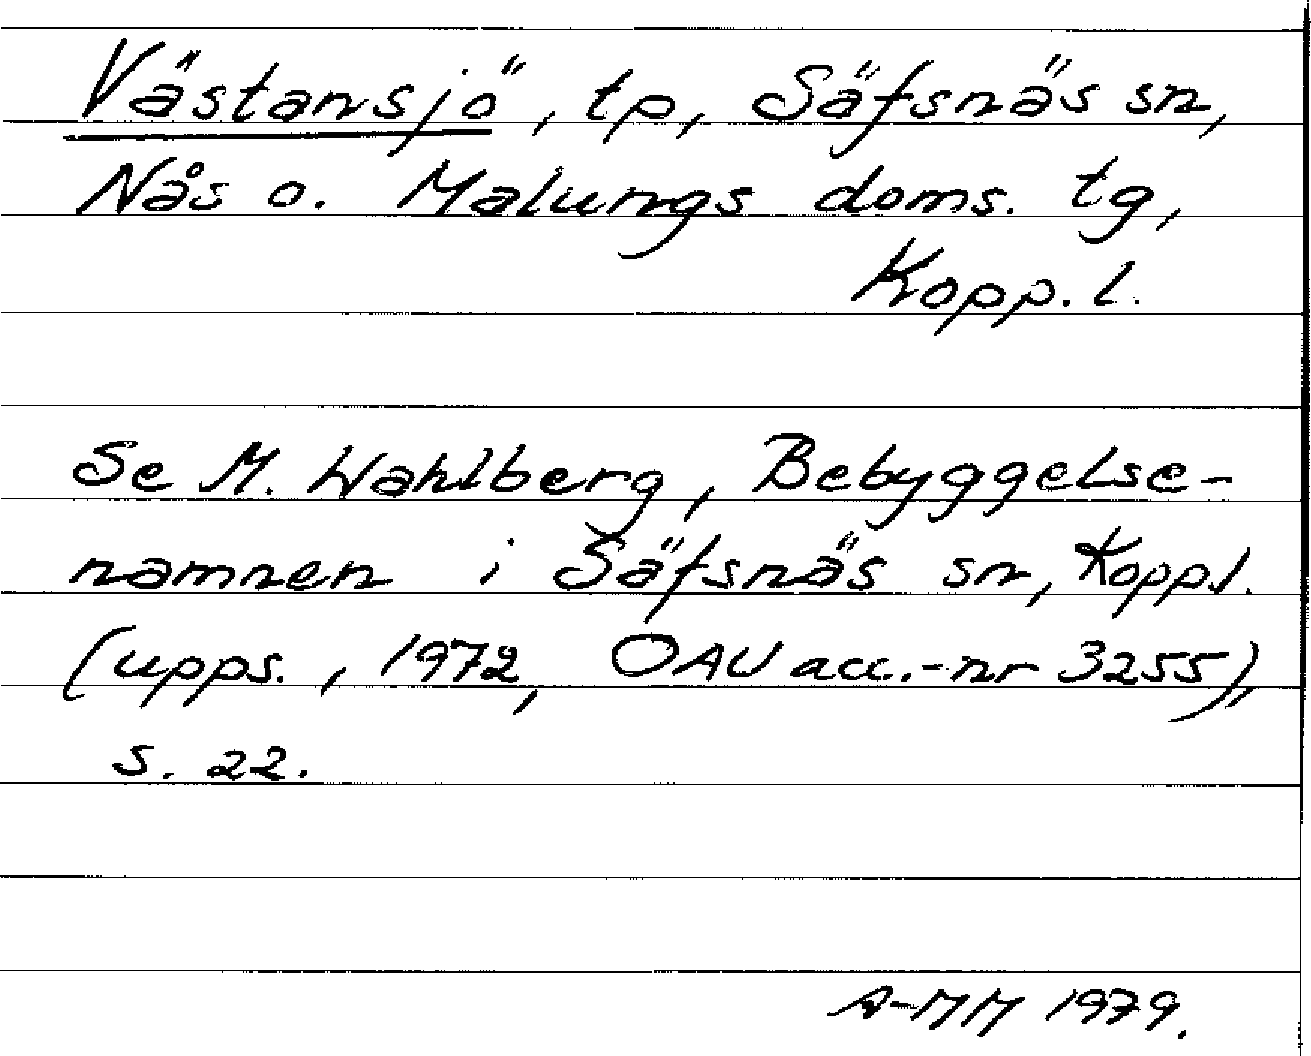 Västansjö, tp, Säfsnäs sn,
Nås o. Malungs doms. tg,
Kopp. l.
Se M. Wahlberg, Bebyggelse-
namnen i Säfsnäs sn, Kopp.l.
(upps., 1972, OAU acc.-nr 3255),
s. 22.
A-MM 1979.